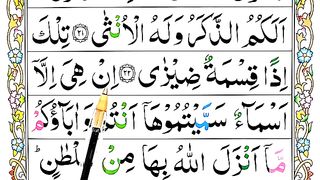 اَلَكُمُ الذَّكَرُ وَلَهُ الْاُنْثٰى ﴿۲۱﴾ تِلْكَ
اِذًا قِسْمَةٌ ضِيْزٰى ﴿۲۲﴾ اِنْ هِىَ اِلَّاۤ
اَسْمَآءٌ سَمَّيْتُمُوْهَاۤ اَنْتُمْ وَاٰبَآؤُكُمْ
مَّاۤ اَنْزَلَ اللّٰهُ بِهَا مِنْ سُلْطٰنٍ